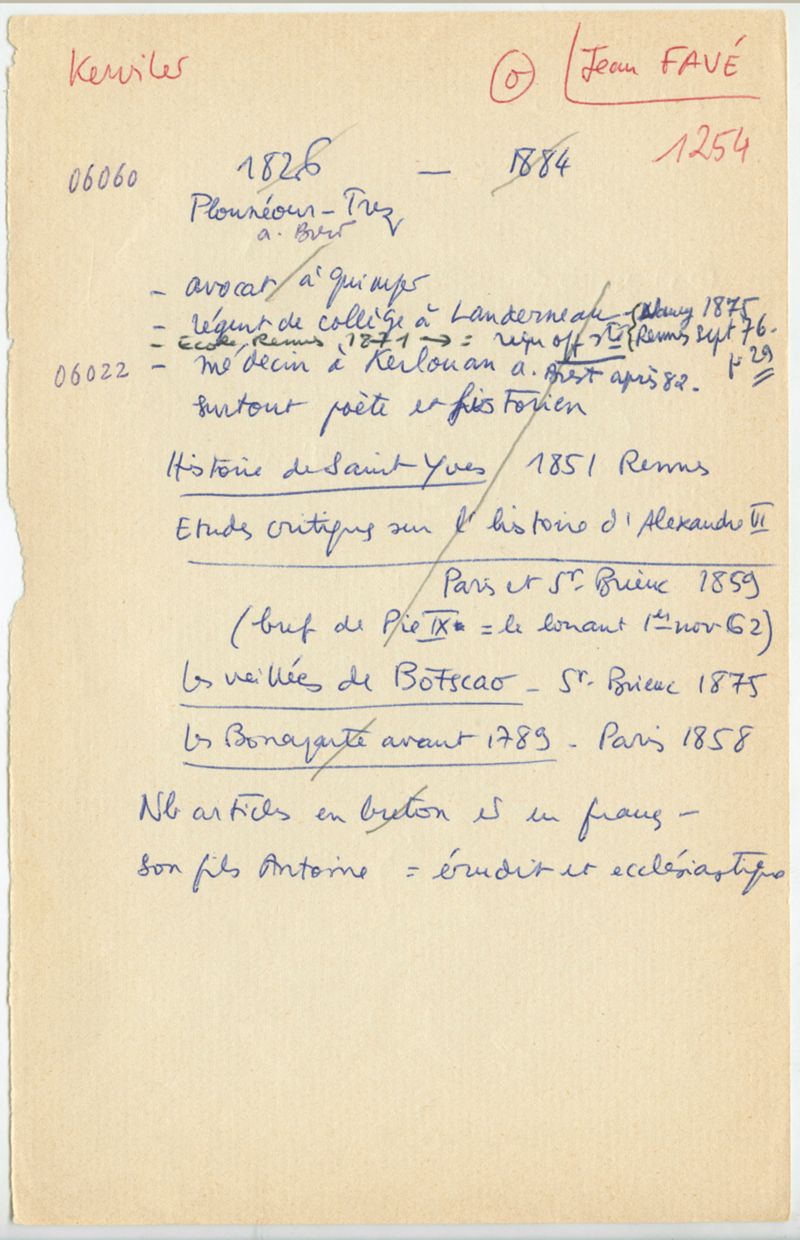 Kerviler
o Jean FAVÉ
1254
06060 1826 — 1884
Plounéour-Trez
a. Brest
- avocat à Quimper
- régent de collège à Landerneau - Nancy 1875
- Ecole Rennes 1871 → = off Rennes sept 76.
06022 - médecin à Kerlouan a. Brest après 82. p 29
surtout poète et historien
Histoire de Saint Yves 1851 Rennes
Etudes critiques sur l'histoire d'Alexandre VI
Paris et St-Brieuc 1859
(bref de Pie IX = le louant 1er nov 62)
les veillées de Botscao - St-Brieuc 1875
les Bonaparte avant 1789 - Paris 1858
Nb articles en breton et en franç -
son fils Antoine = érudit et ecclésiastique